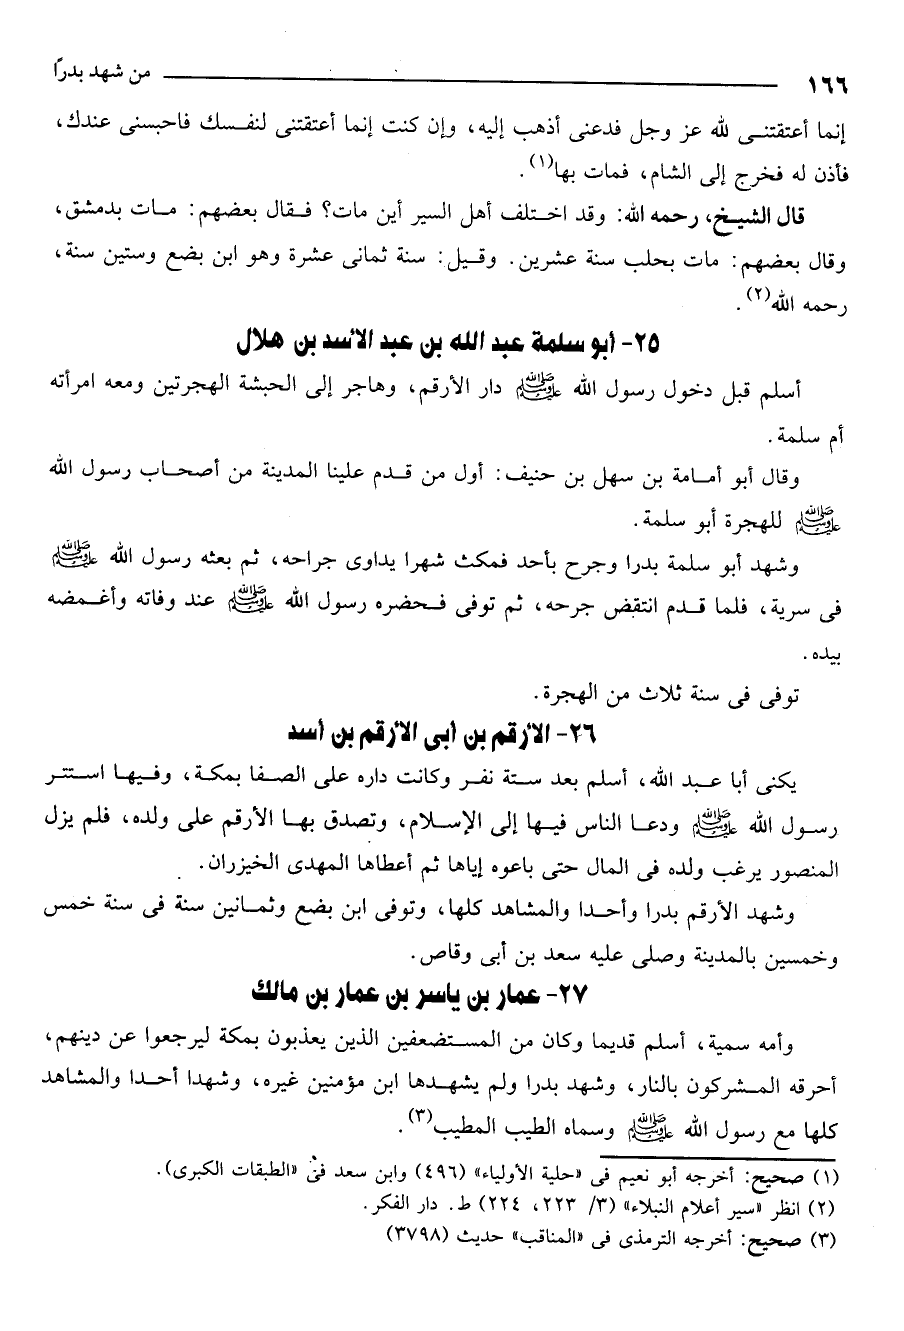 ١٦٦ من شهد بدرًا
إنما أعتقتنى لله عز وجل فدعنى أذهب إليه، وإن كنت إنما أعتقتنى لنفسك فاحبسنى عندك،
فأذن له فخرج إلى الشام، فمات بها(١).
قال الشيخ، رحمه الله: وقد اختلف أهل السير أين مات؟ فقال بعضهم: مات بدمشق،
وقال بعضهم: مات بحلب سنة عشرين. وقيل: سنة ثمانى عشرة وهو ابن بضع وستين سنة،
رحمه الله(٢).
٢٥- أبو سلمة عبد الله بن عبد الأسد بن هلال
أسلم قبل دخول رسول الله ﷺ دار الأرقم، وهاجر إلى الحبشة الهجرتين ومعه امرأته
أم سلمة.
وقال أبو أمامة بن سهل بن حنيف: أول من قدم علينا المدينة من أصحاب رسول الله
ﷺ للهجرة أبو سلمة.
وشهد أبو سلمة بدرا وجرح بأحد فمكث شهرا يداوى جراحه، ثم بعثه رسول الله ﷺ
فى سرية، فلما قدم انتقض جرحه، ثم توفى فحضره رسول الله ﷺ عند وفاته وأغمضه
بيده.
توفى فى سنة ثلاث من الهجرة.
٢٦- الأرقم بن أبى الأرقم بن أسد
يكنى أبا عبد الله، أسلم بعد ستة نفر وكانت داره على الصفا بمكة، وفيها استتر
رسول الله ﷺ ودعا الناس فيها إلى الإسلام، وتصدق بها الأرقم على ولده، فلم يزل
المنصور يرغب ولده فى المال حتى باعوه إياها ثم أعطاها المهدى الخيزران.
وشهد الأرقم بدرا وأحدا والمشاهد كلها، وتوفى ابن بضع وثمانين سنة فى سنة خمس
وخمسين بالمدينة وصلى عليه سعد بن أبى وقاص.
٢٧- عمار بن ياسر بن عمار بن مالك
وأمه سمية، أسلم قديما وكان من المستضعفين الذين يعذبون بمكة ليرجعوا عن دينهم،
أحرقه المشركون بالنار، وشهد بدرا ولم يشهدها ابن مؤمنين غيره، وشهدا أحدا والمشاهد
كلها مع رسول الله ﷺ وسماه الطيب المطيب(٣).
(١) صحيح: أخرجه أبو نعيم فى «حلية الأولياء» (٤٩٦) وابن سعد فى «الطبقات الكبرى).
(٢) انظر «سير أعلام النبلاء» (٣/ ٢٢٣، ٢٢٤) ط. دار الفكر.
(٣) صحيح: أخرجه الترمذى فى «المناقب» حديث (٣٧٩٨)